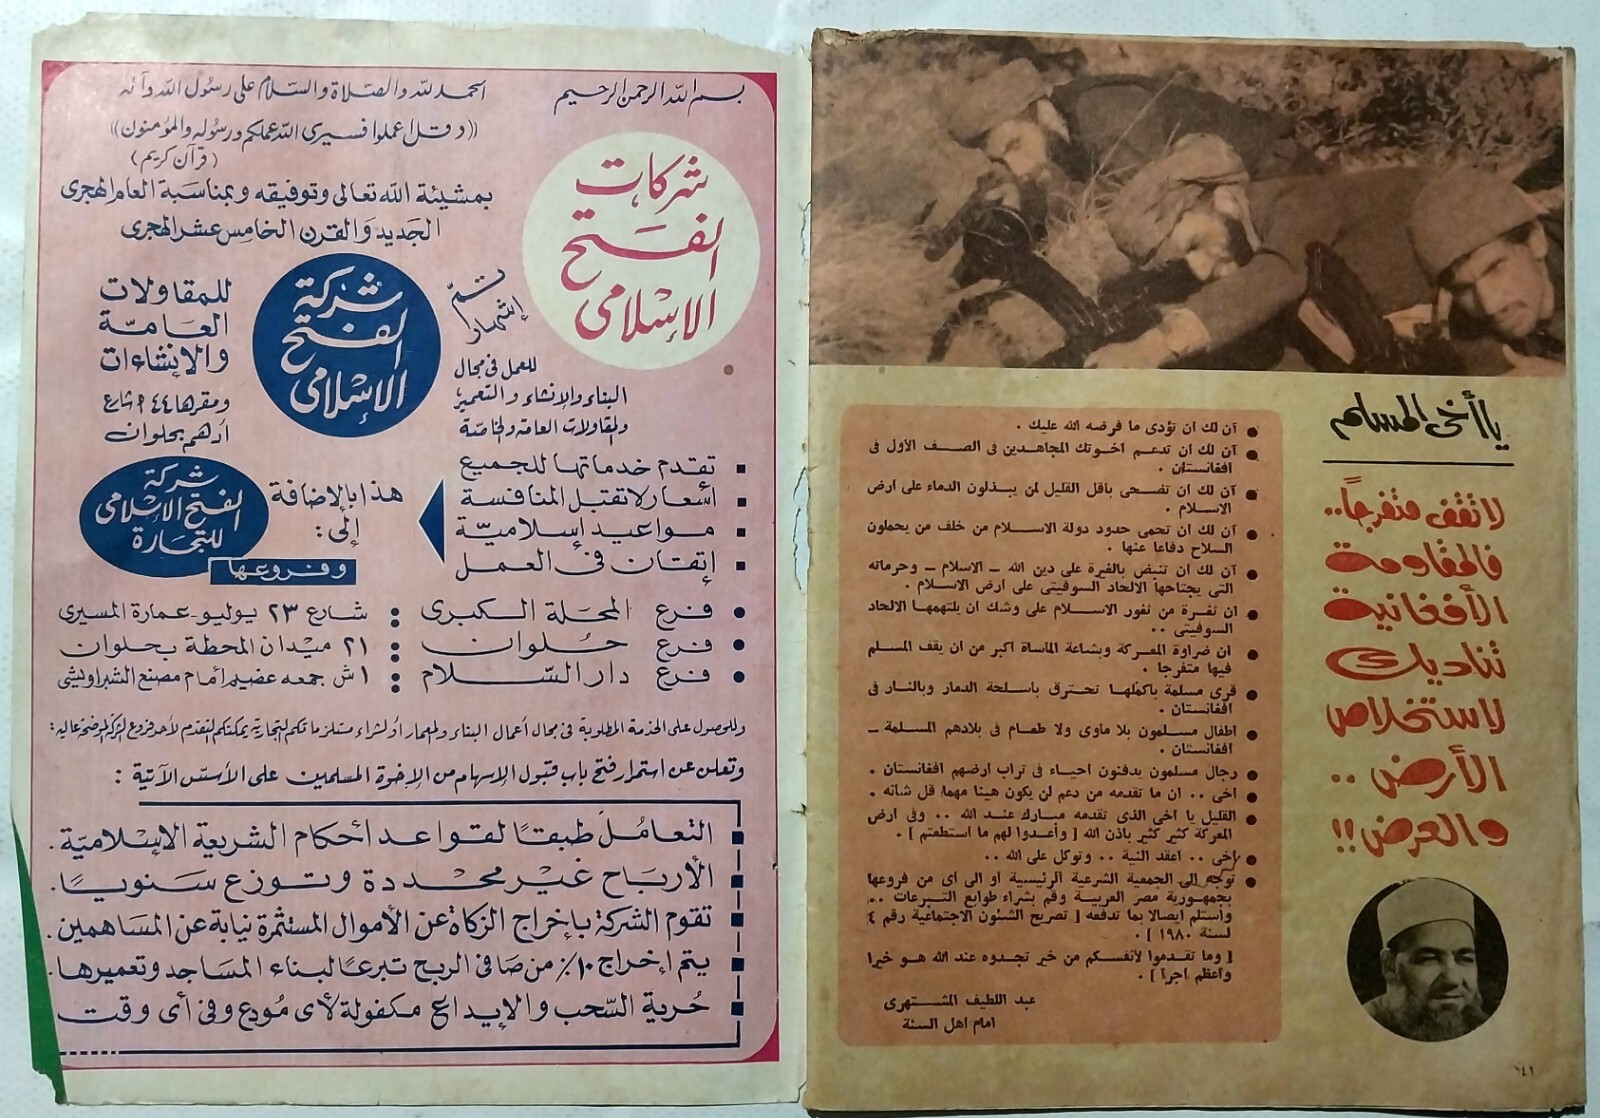 يا أخى المسلم
لا تقف متفرجاً..
فالمقاومة
الأفغانية
تناديك
لاستخلاص
الأرض ..
والعرض !!
آن لك ان تؤدى ما فرضه الله عليك .
آن لك ان تدعم اخوتك المجاهدين فى الصف الأول فى
افغانستان .
آن لك ان تضحى باقل القليل لمن يبذلون الدماء على ارض
الاسلام .
آن لك ان تحمى حدود دولة الاسلام من خلف من يحملون
السلاح دفاعا عنها .
آن لك ان تنبض بالغيرة على دين الله ــ الاسلام ــ وحرماته
التى يجتاحها الالحاد السوفيتى على ارض الاسلام .
ان ثغرة من ثغور الاسلام على وشك ان يلتهمها الالحاد
السوفيتى ..
ان ضراوة المعركة وبشاعة الماساة اكبر من ان يقف المسلم
فيها متفرجا .
قرى مسلمة باكملها تحترق باسلحة الدمار وبالنار فى
افغانستان .
اطفال مسلمون بلا ماوى ولا طعام فى بلادهم المسلمة ــ
افغانستان .
رجال مسلمون يدفنون احياء فى تراب ارضهم افغانستان .
اخى .. ان ما تقدمه من دعم لن يكون هينا مهما قل شانه .
القليل يا اخى الذى تقدمه مبارك عند الله .. وفى ارض
المعركة كثير كثير باذن الله [ وأعدوا لهم ما استطعتم ] .
اخى .. اعقد النية .. وتوكل على الله ..
توجه إلى الجمعية الشرعية الرئيسية او الى اى من فروعها
بجمهورية مصر العربية وقم بشراء طوابع التبرعات ..
واستلم ايصالا بما تدفعه [ تصريح الشئون الاجتماعية رقم ٤
لسنة ١٩٨٠ ] .
[ وما تقدموا لأنفسكم من خير تجدوه عند الله هو خيرا
واعظم اجرا ] .
عبد اللطيف المشتهرى
امام اهل السنة
١٤١
بسم الله الرحمن الرحيم
الحمد لله والصلاة والسلام على رسول الله وآله
((وقل اعملوا فسيرى الله عملكم ورسوله والمؤمنون))
(قرآن كريم)
شركات
الفتح
الإسلامى
بمشيئة الله تعالى وتوفيقه وبمناسبة العام الهجرى
الجديد والقرن الخامس عشر الهجرى
تمّ
إشهار
شركة
الفتح
الإسلامى
للمقاولات
العامة
والإنشاءات
ومقرها ٤٤ م شارع
أدهم بحلوان
للعمل فى مجال
البناء والإنشاء والتعمير
والمقاولات العامة والخاصة
تقدم خدماتها للجميع
أسعار لا تقبل المنافسة
مواعيد إسلامية
إتقان فى العمل
هذا بالإضافة
إلى :
شركة
الفتح الإسلامى
للتجارة
وفروعها
فرع المحلة الكبرى : شارع ٢٣ يوليو - عمارة المسيرى
فرع حلوان : ٢١ ميدان المحطة بحلوان
فرع دار السلام : ١ ش جمعه عضيم أمام مصنع الشبراويشى
وللحصول على الخدمة المطلوبة فى مجال أعمال البناء والمعمار أو لشراء مستلزماتكم التجارية يمكنكم التقدم لأحد فروع الشركة الموضحة عاليه :
وتعلن عن استمرار فتح باب قبول الإسهام من الإخوة المسلمين على الأسس الآتية :
التعامل طبقًا لقواعد أحكام الشريعة الإسلامية .
الأرباح غير محددة وتوزع سنويًا .
تقوم الشركة بإخراج الزكاة عن الأموال المستثمرة نيابة عن المساهمين .
يتم إخراج ١٠٪ من صافى الربح تبرعًا لبناء المساجد وتعميرها .
حرية السحب والإيداع مكفولة لأى مُودع وفى أى وقت